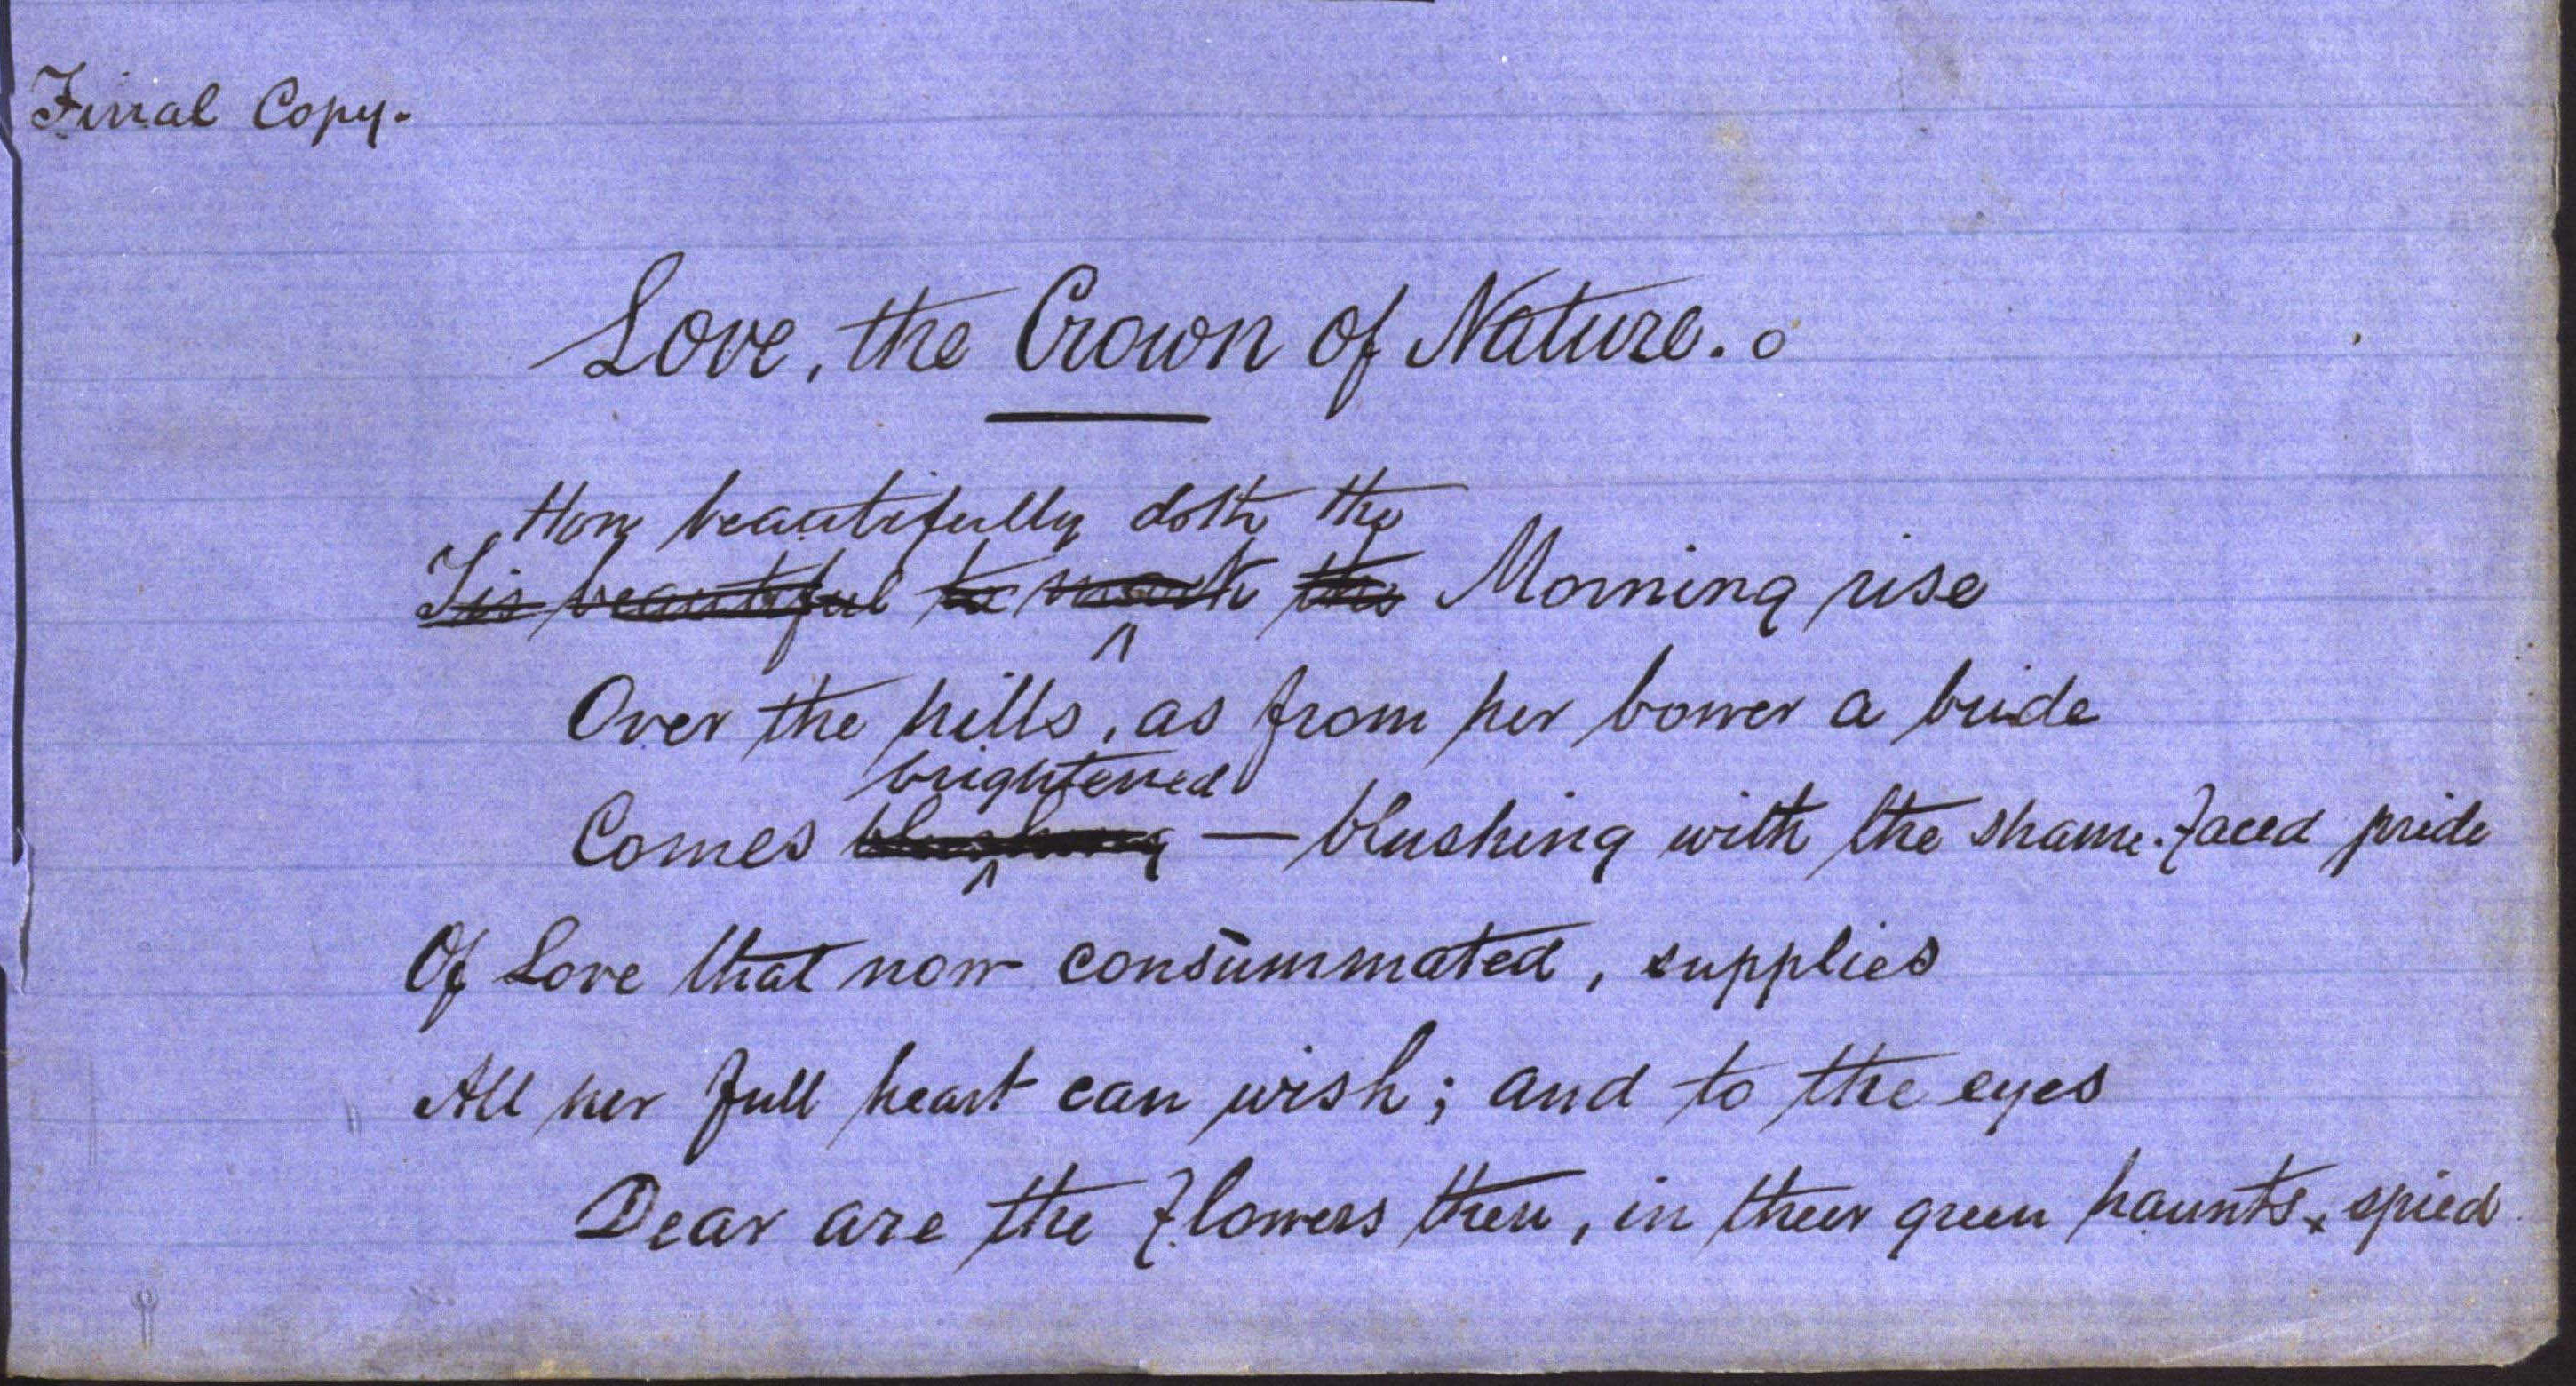 Final Copy.
Love, the Crown of Nature. o
How beautifully doth the
Tis beautiful to mark the Morning rise
Over the hills, as from her bower a bride
brightened
Comes blushing — blushing with the shame-faced pride
Of Love that now consummated, supplies
All her full heart can wish; and to the eyes
Dear are the flowers then, in their green haunts, spied